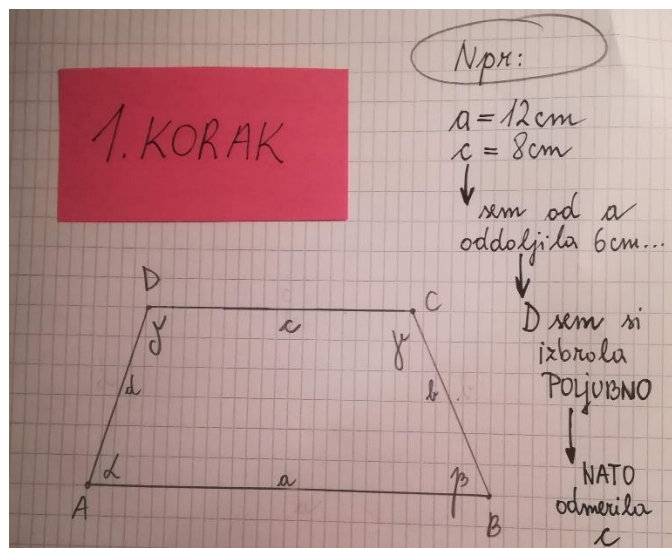 1. KORAK
Npr:
a = 12 cm
c = 8 cm
sem od a
oddoljila 6 cm...
D sem si
izbrola
POLJUBNO
NATO
odmerila
c
D
C
c
γ
d
b
α
a
β
A
B